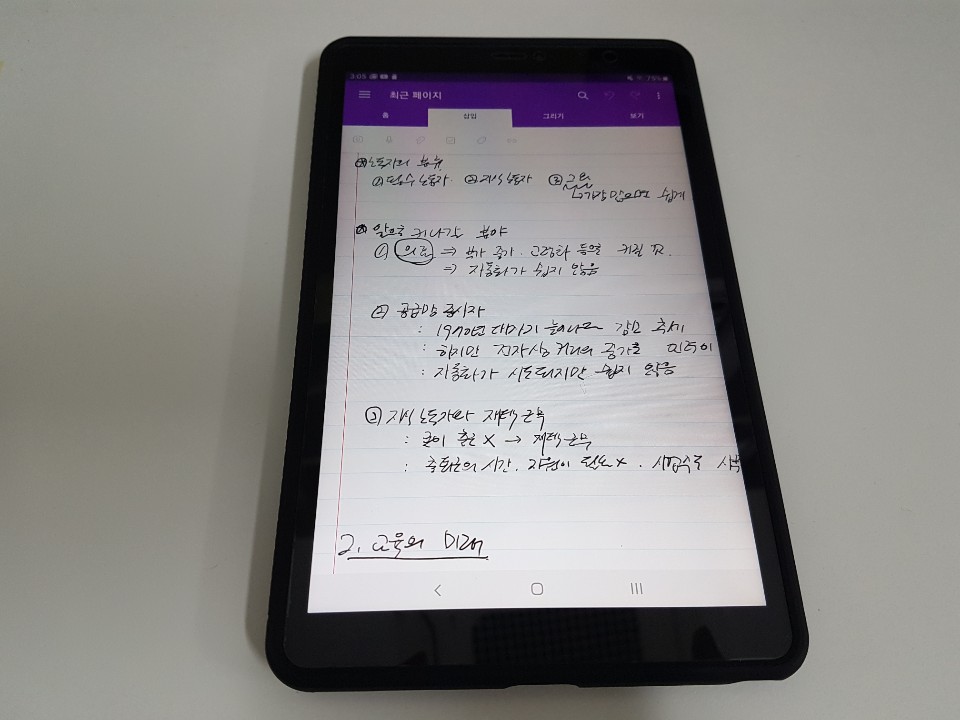 3:05
75%
최근 페이지
홈 삽입 그리기 보기
노동자의 분류
① 필수 노동자 ② 지식 노동자 ③ 그 외
앞으로 커나갈 분야
① 의료 ⇒ 부가 증가. 고령화 등으로 커질 것.
⇒ 자동화가 쉽지 않음
② 공급망 종사자
: 1970년대까지 늘어나다 감소 추세
: 하지만 전자상거래의 증가로 인력이
: 자동화가 시도되지만 쉽지 않음
③ 지식 노동자와 재택근무
: 굳이 출근 X → 재택근무
: 출퇴근의 시간. 자원이 필요 X.
2. 교육의 미래